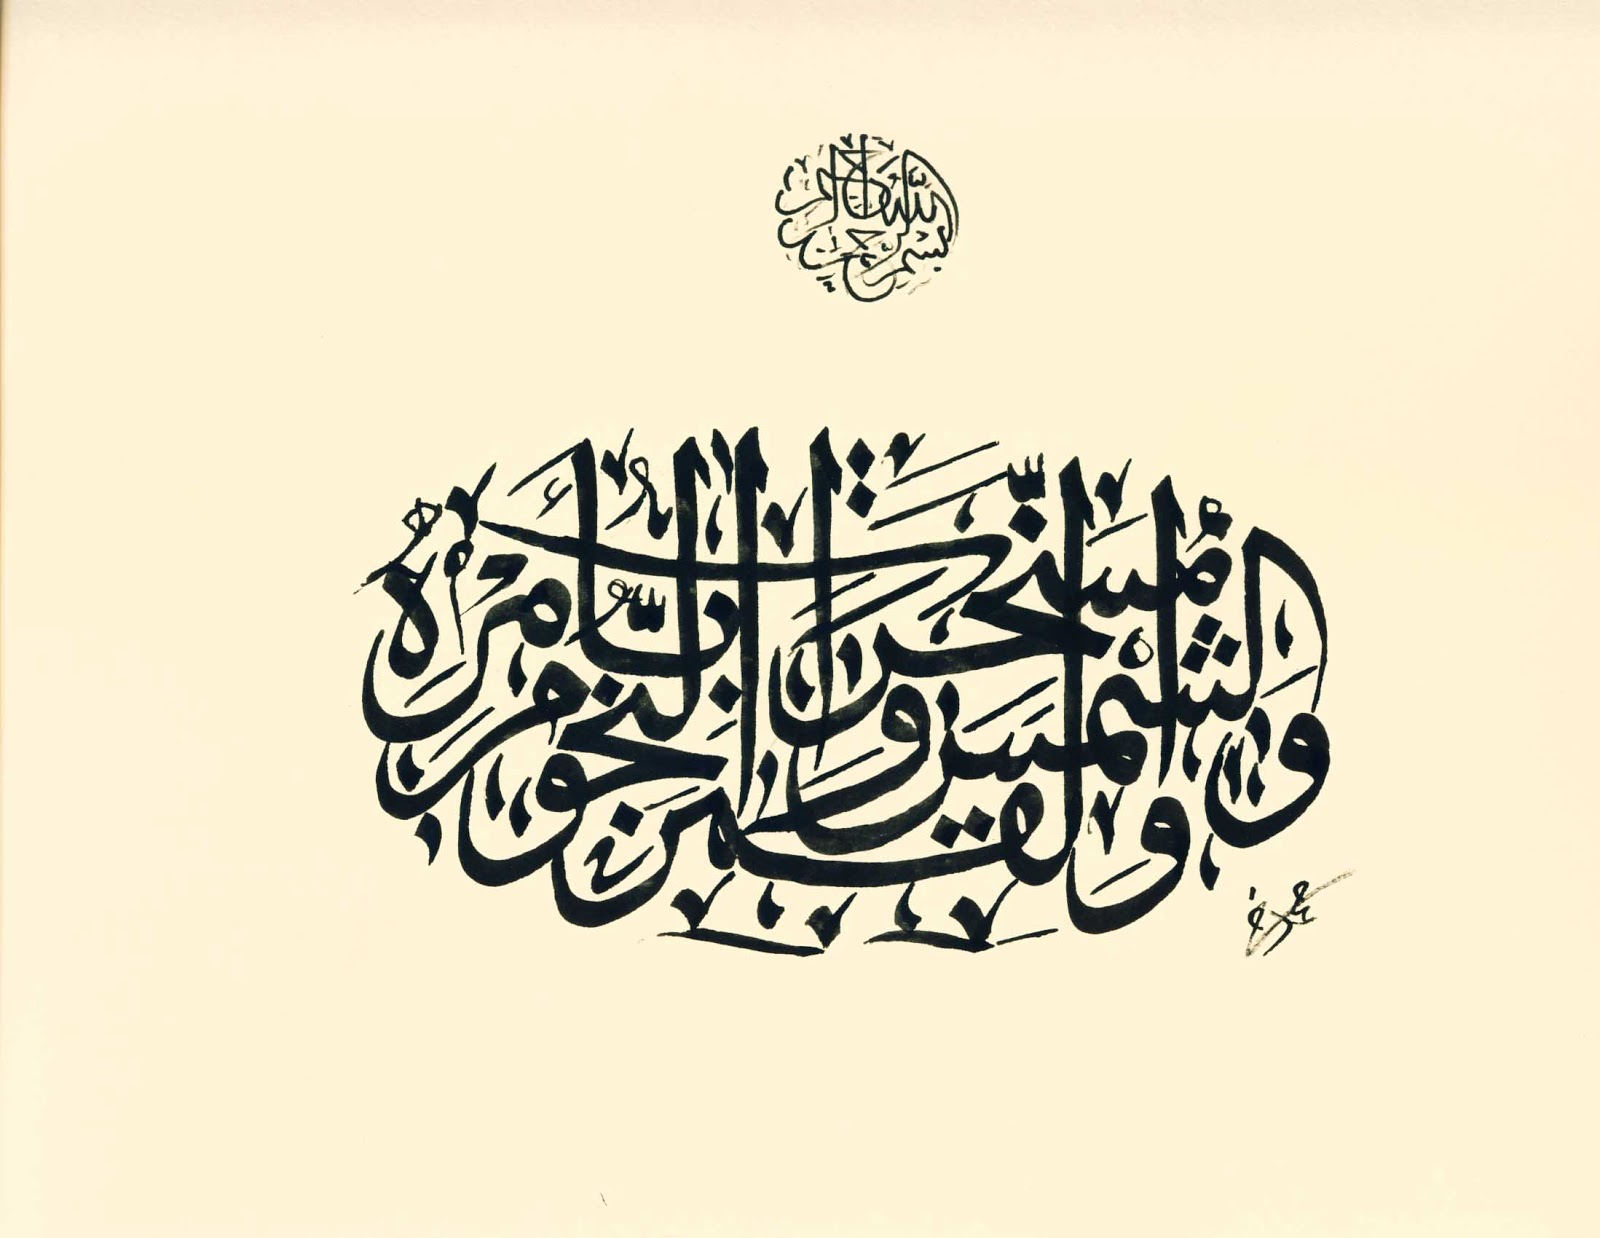 بسم الله الرحمن الرحيم
وَالشَّمْسَ وَالْقَمَرَ وَالنُّجُومَ مُسَخَّرَاتٍ بِأَمْرِهِ